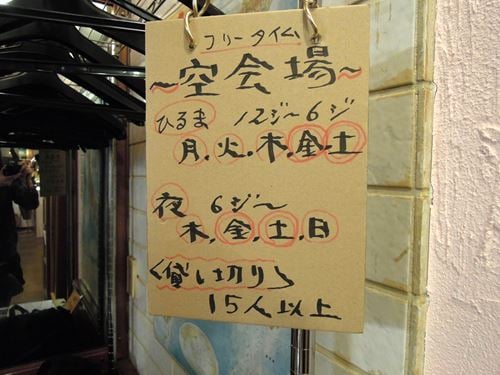 フリータイム
～空会場～
ひるま 12ジ～6ジ
月.火.木.金.土
夜 6ジ～
木.金.土.日
〈貸し切り〉
15人以上